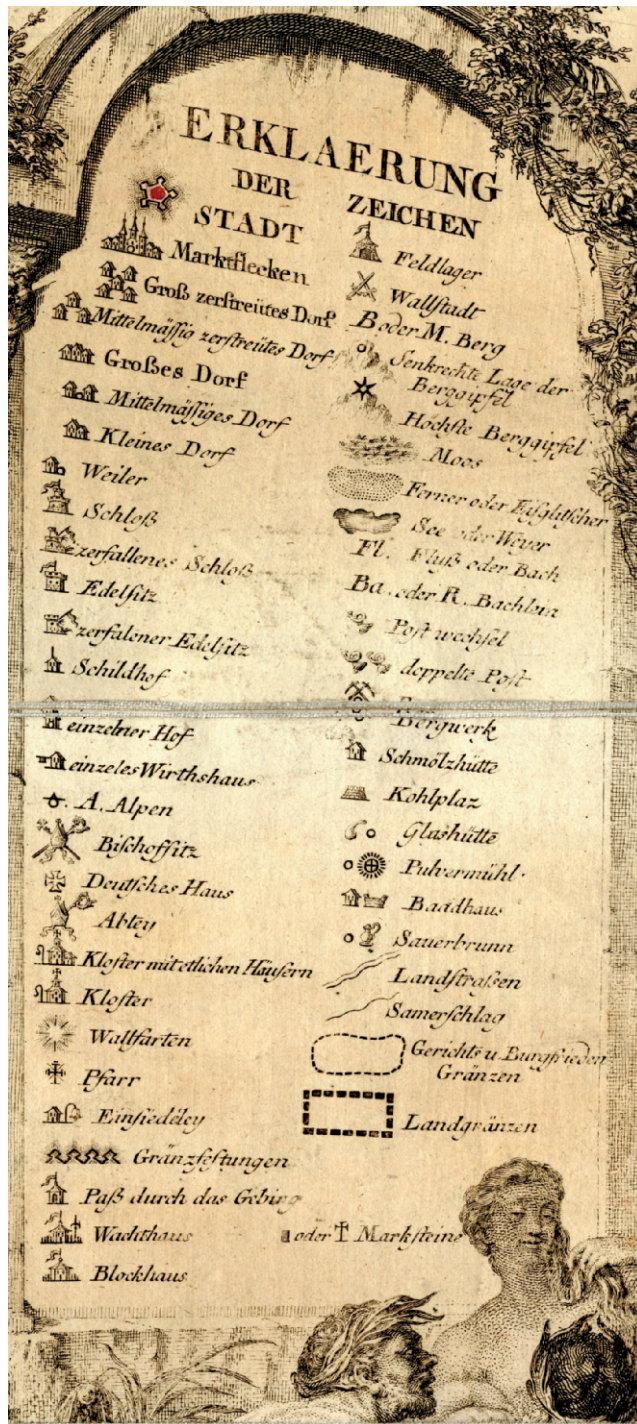 ERKLAERUNG
DER ZEICHEN
STADT
Marktflecken
Groß zerstreütes Dorf
Mittelmässig zerstreütes Dorf
Großes Dorf
Mittelmässiges Dorf
Kleines Dorf
Weiler
Schloß
zerfallenes Schloß
Edelsitz
zerfalener Edelsitz
Schildhof
einzelner Hof
einzeles Wirthshaus
A. Alpen
Bischoffsitz
Deutsches Haus
Abtey
Kloster mit etlichen Häusern
Kloster
Wallfarten
Pfarr
Einsiedeley
Gränzfestungen
Paß durch das Gebirg
Wachthaus
Blockhaus
Feldlager
Wallstadt
B oder M. Berg
Senkrechte Lage der
Berggipfel
Höchste Berggipfel
Moos
Ferner oder Eisglätscher
See oder Weyer
Fl. Fluß oder Bach
Ba. oder R. Bachlein
Post wechsel
doppelte Post
Bergwerk
Schmölzhütte
Kohlplaz
Glashütte
Pulvermühl.
Baadhaus
Sauerbrunn
Landstraßen
Samerschlag
Gerichts u. Burgfrieden
Gränzen
Landgränzen
oder Marksteine